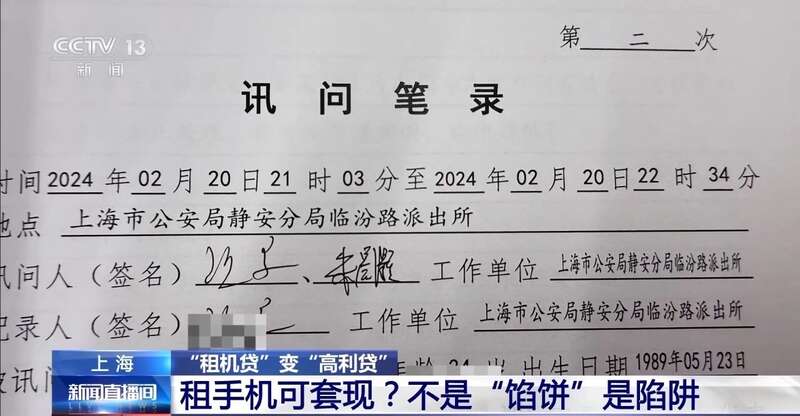 CCTV 13
新闻
第 二 次
讯 问 笔 录
时间 2024 年 02 月 20 日 21 时 03 分至 2024 年 02 月 20 日 22 时 34 分
地点 上海市公安局静安分局临汾路派出所
讯问人（签名） 、 工作单位 上海市公安局静安分局临汾路派出所
记录人（签名） 工作单位 上海市公安局静安分局临汾路派出所
被讯问 龄 34 岁 出生日期 1989年05月23日
上海 “租机贷”变“高利贷”
新闻直播间 租手机可套现？不是“馅饼”是陷阱